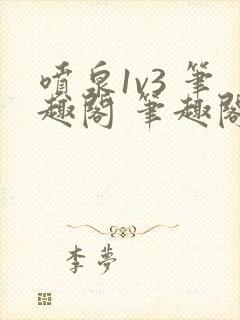 噴泉1v3 筆
趣閣 筆趣閣
李夢